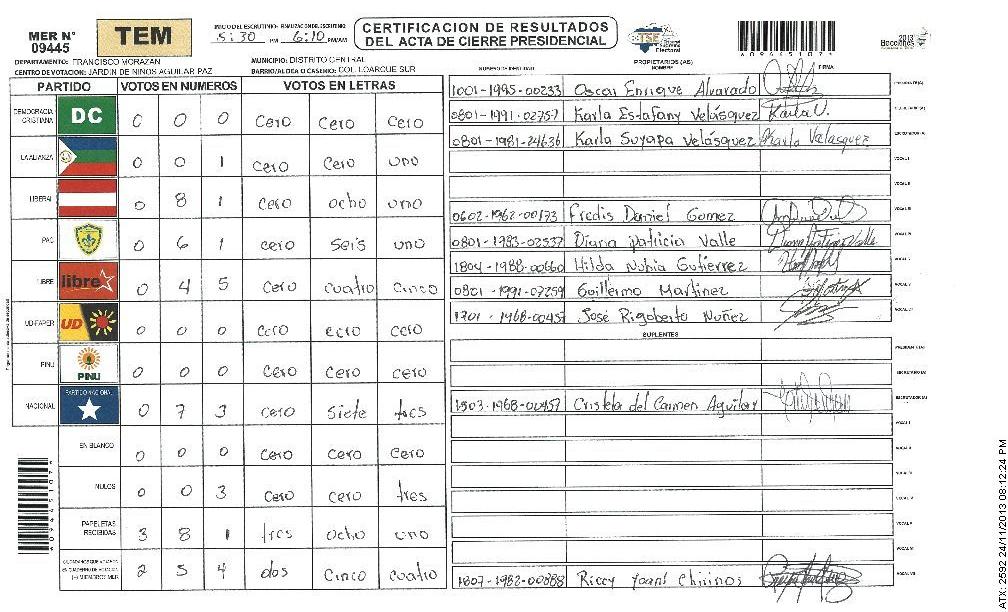 MER N° 09445
TEM
INICIO DEL ESCRUTINIO: FINALIZACION DEL ESCRUTINIO
5:30 PM 6:10 PM/AM
CERTIFICACION DE RESULTADOS
DEL ACTA DE CIERRE PRESIDENCIAL
TSE
Tribunal Supremo Electoral
6094451074
2013
DEPARTAMENTO: FRANCISCO MORAZAN
MUNICIPIO: DISTRITO CENTRAL
CENTRO DE VOTACION: JARDIN DE NIÑOS AGUILAR PAZ
BARRIO/ALDEA O CASERIO: COL. LOARQUE SUR
PARTIDO VOTOS EN NUMEROS VOTOS EN LETRAS
DEMOCRACIA CRISTIANA DC 0 0 0 Cero Cero Cero
LA ALIANZA 0 0 1 Cero Cero uno
LIBERAL 0 8 1 Cero ocho uno
PAC 0 6 1 cero seis uno
LIBRE libre 0 4 5 Cero cuatro Cinco
UD-FAPER UD 0 0 0 cero cero cero
PINU PINU 0 0 0 Cero Cero cero
NACIONAL PARTIDO NACIONAL 0 7 3 cero Siete tres
EN BLANCO 0 0 0 Cero Cero Cero
NULOS 0 0 3 Cero Cero tres
PAPELETAS RECIBIDAS 3 8 1 tres ocho uno
2 5 4 dos Cinco cuatro
NUMERO DE IDENTIDAD PROPIETARIOS (AS) NOMBRE FIRMA
1001-1985-00233 Oscar Enrique Alvarado PRESIDENTE(A)
0801-1991-02757 Karla Estafany Velásquez Karla V. SECRETARIO(A)
0801-1981-24636 Karla Suyapa Velásquez Karla Velasquez ESCRUTADOR(A)
VOCAL I
VOCAL II
0602-1962-00173 Fredis Daniel Gomez VOCAL III
0801-1983-02537 Diana Patricia Valle VOCAL IV
1804-1988-00660 Hilda Nubia Gutierrez VOCAL V
0801-1991-07259 Guillermo Martinez
1701-1968-00457 José Rigoberto Nuñez
SUPLENTES
PRESIDENTE(A)
SECRETARIO(A)
1503-1968-00457 Cristela del Carmen Aguilar ESCRUTADOR(A)
VOCAL I
VOCAL II
VOCAL III
VOCAL IV
VOCAL V
VOCAL VI
1807-1982-00888 Riccy Yoani Chirinos
6094451074
ATX: 2592 24/11/2013 08:12:24 PM